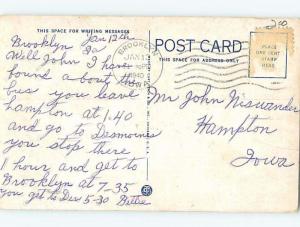 THIS SPACE FOR WRITING MESSAGES
Brooklyn Jan 12th
Ia
Well John I have
found a bout the
bus you leave
Hampton at 1.40
and go to Desmoines
you stop there
1 hour and get to
Brooklyn at 7-35
you get to Des 5-30 Billie
BROOKLYN
JAN 13
1940
IOWA
POST CARD
THIS SPACE FOR ADDRESS ONLY
PLACE
ONE CENT
STAMP
HERE
Mr John Niswander
Hampton
Iowa